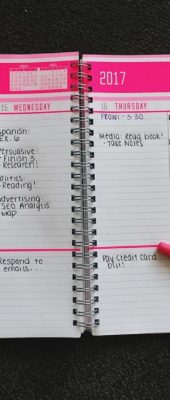 2017
15 WEDNESDAY
Spanish:
Ex. 6
Persuasive:
- Finish 3
Research!
Politics:
- Reading!
Advertising:
SEO Analysis
Map
Respond to
emails...
16 THURSDAY
PROWL - 5:30
Media- Read book!
- Take Notes
Pay Credit Card
bill!